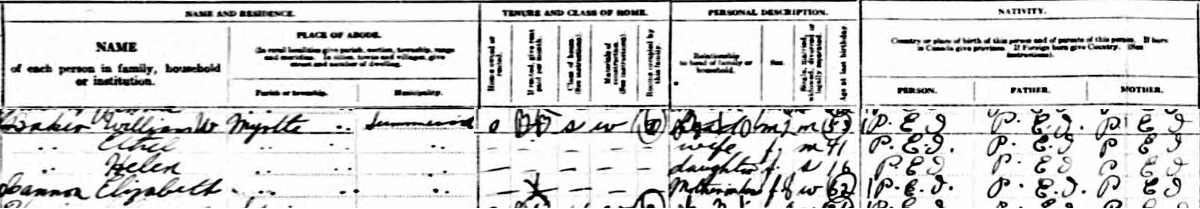 NAME AND RESIDENCE. TENURE AND CLASS OF HOME. PERSONAL DESCRIPTION. NATIVITY.
NAME
of each person in family, household
or institution.
PLACE OF ABODE.
(In rural localities give parish, section, township, range
and meridian. In cities, towns and villages, give
street and number of dwelling.)
Parish or township. Municipality.
Home owned or rented.
If rented, give rent paid per month.
Class of house (See instructions).
Materials of construction. (See instructions).
Rooms occupied by this family.
Relationship
to head of family or
household.
Sex.
Single, married, widowed, divorced or legally separated.
Age at last birthday.
Country or place of birth of this person and of parents of this person. If born
in Canada give province. If Foreign born give Country. (See
instructions).
PERSON. FATHER. MOTHER.
Baker William W Myrtle " o s w Head m m P.E.I P.E.I P E I
" Ethel " " - - - - - wife f m 41 P.E.I. P.E.I P E I
" Helen " " - - - - - daughter f s 16 P.E.I P.E.I P E I
Cannon Elizabeth " " - - - - f w 62 P.E.I. P.E.I. P E I